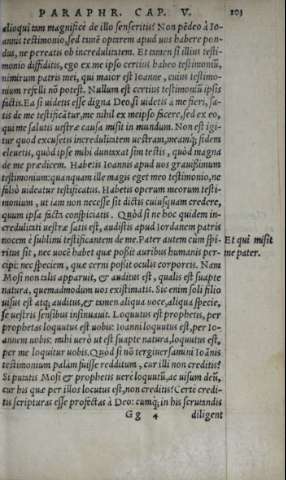 PARAPHR. CAP. V. 203
alioqui tam magnificè de illo senseritis? Non pẽdeo à Io-
annis testimonio, sed tunc optarem apud uos habere pon-
dus, ne pereatis ob incredulitatem. Et tamen si illius testi-
monio diffiditis, ego ex me ipso certius habeo testimoniũ,
nimirum patris mei, qui maior est Ioanne, cuius testimo-
nium refelli nõ potest. Nullum est certius testimoniũ ipsis
factis. Ea si uidetis esse digna Deo, si uidetis à me fieri, sa-
tis de me testificãtur, me nihil ex meipso facere, sed ex eo,
qui me salutis uestræ causa misit in mundum. Non est igi-
tur quod excusetis incredulitatem uestram, meamq; fidem
eleuetis, quòd ipse mihi duntaxat sim testis, quòd magna
de me prædicem. Habetis Ioannis apud uos grauissimum
testimonium: quanquam ille magis eget meo testimonio, ne
falsò uideatur testificatus. Habetis operum meorum testi-
monium, ut iam non necesse sit dictis cuiusquam credere,
quum ipsa facta conspiciatis. Quòd si ne hoc quidem in-
credulitati uestræ satis est, audistis apud Iordanem patris
uocem è sublimi testificantem de me. Pater autem cum spi-
ritus sit, nec uocẽ habet quæ possit auribus humanis per-
cipi: nec speciem, quæ cerni possit oculis corporeis. Nam
Mosi non talis apparuit, & auditus est, qualis est suapte
natura, quemadmodum uos existimatis. Sic enim soli filio
uisus est atq; auditus, & tamen aliqua uoce, aliqua specie,
se uestris sensibus insinuauit. Loquutus est prophetis, per
prophetas loquutus est uobis: Ioanni loquutus est, per Io-
annem uobis: mihi uerò ut est suapte natura, loquutus est,
per me loquitur uobis. Quòd si nõ tergiuersamini Ioãnis
testimonium palam fuisse redditum, cur illi non creditis?
Si putatis Mosi & prophetis uerè loquutũ, ac uisum deũ,
cur his quæ per illos locutus est, non creditis? Certe credi-
tis scripturas esse profectas à Deo: cumq; in his scrutandis
Gg 4 diligent
Et qui misit
me pater.